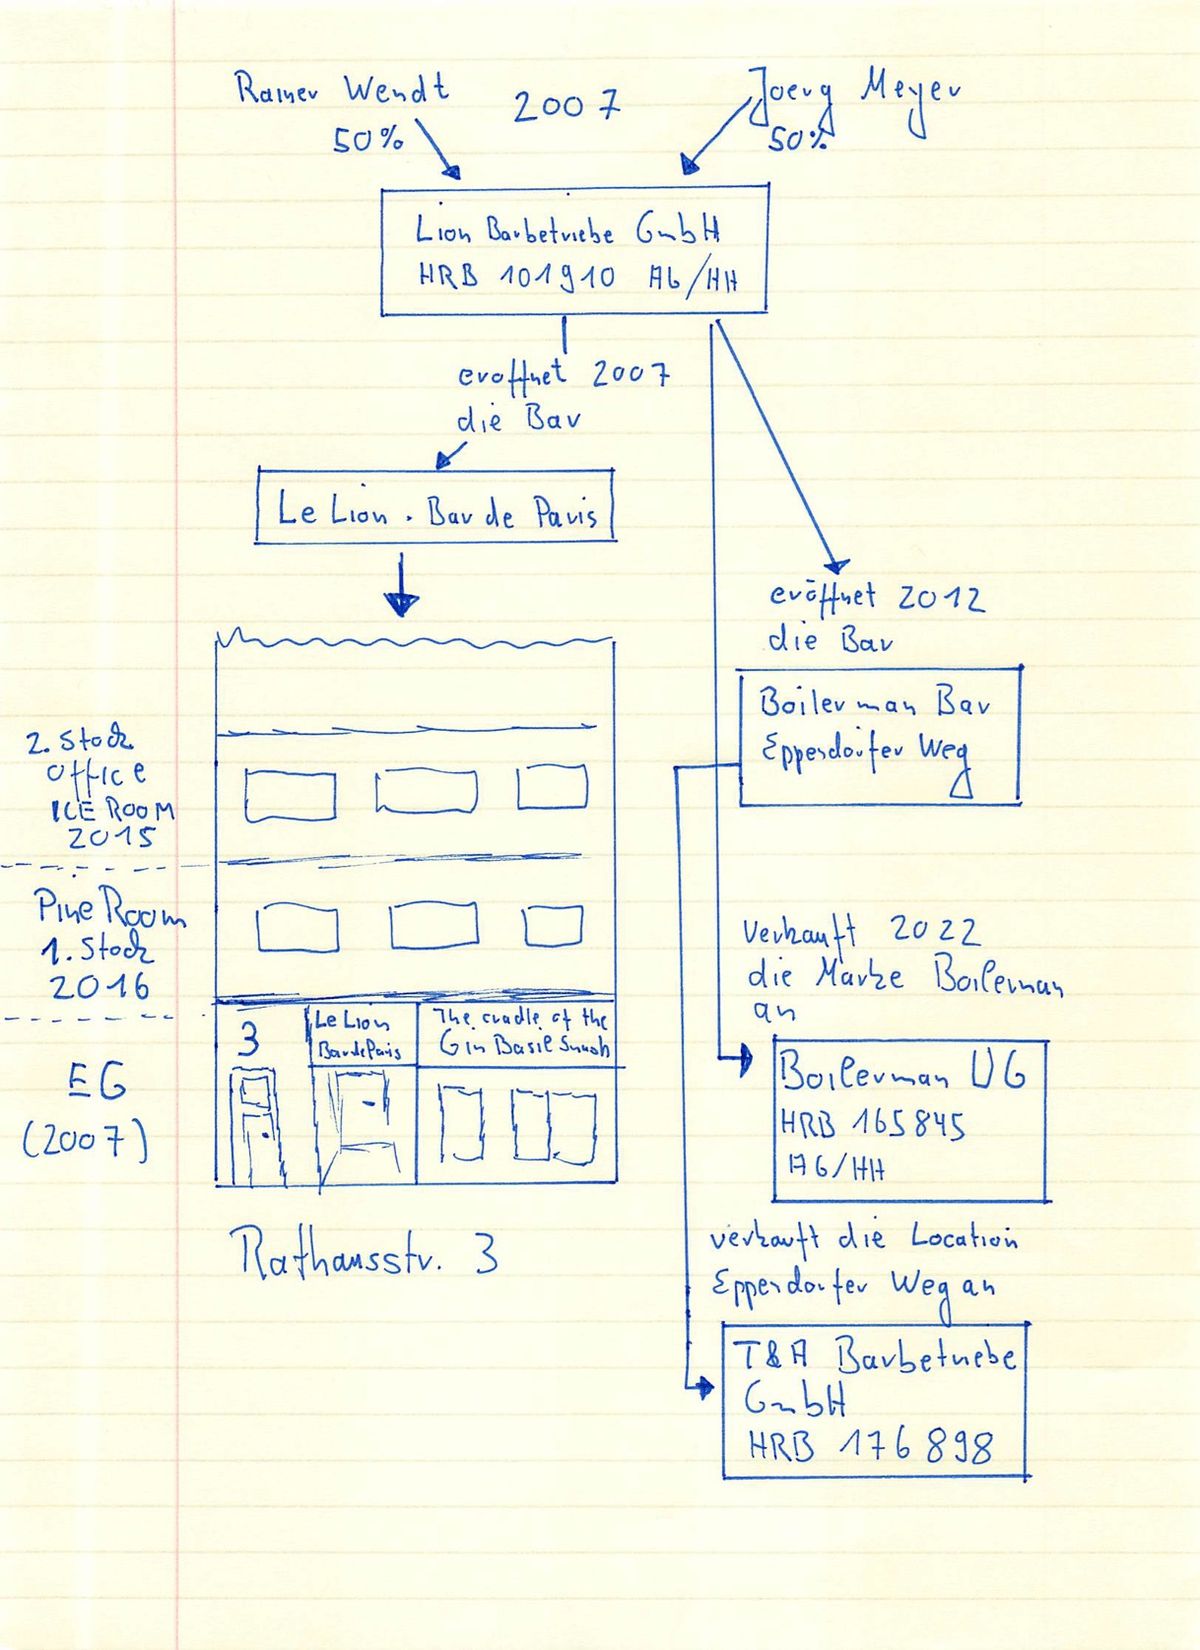 Rainer Wendt
50%
2007
Joerg Meyer
50%
Lion Barbetriebe GmbH
HRB 101910 AG/HH
eroffnet 2007
die Bar
Le Lion . Bar de Paris
eröffnet 2012
die Bar
Boilerman Bar
Eppendorfer Weg
2. Stock
Office
ICE ROOM
2015
Pine Room
1. Stock
2016
EG
(2007)
3
Le Lion
Bar de Paris
The cradle of the
Gin Basil Smash
Rathausstr. 3
verkauft 2022
die Marke Boilerman
an
Boilerman UG
HRB 165845
AG/HH
verkauft die Location
Eppendorfer Weg an
T&A Barbetriebe
GmbH
HRB 176898